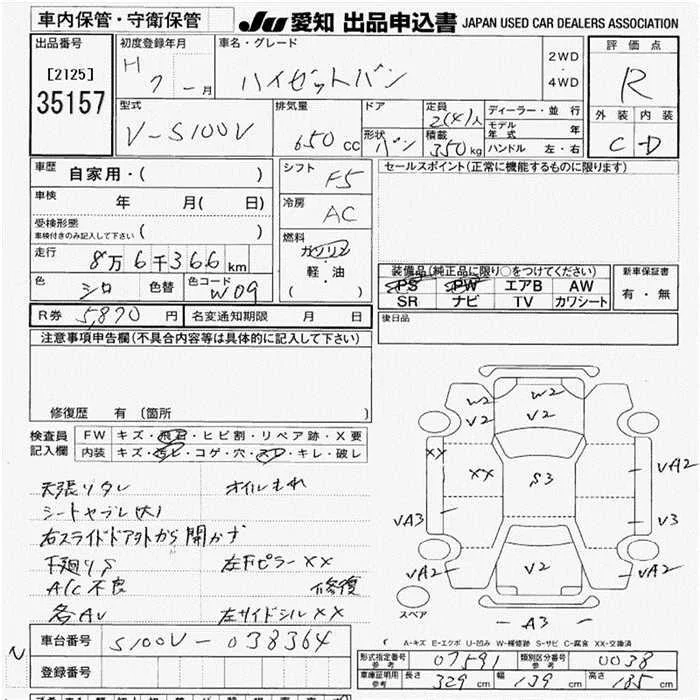 車内保管・守衛保管
JU 愛知 出品申込書 JAPAN USED CAR DEALERS ASSOCIATION
出品番号
[2125]
35157
初度登録年月
H 7 - 月
車名・グレード
ハイゼットバン
2WD
・
4WD
評価点
R
外装 内装
C D
型式
V-S100V
排気量
650 cc
ドア
形状 バン
定員
2(4)人
積載
350 kg
ディーラー・並行
モデル年式 年
ハンドル 左・右
車歴
自家用・( )
車検
年 月( 日)
受検形態
車検付きのみ記入して下さい ( )
走行
8万6千366 km
色 シロ 色替 色コード W09
シフト F5
冷房 AC
燃料
ガソリン
軽・油
( )
セールスポイント(正常に機能するものに限ります)
装備品(純正品に限り○をつけてください)
PS PW エアB AW
SR ナビ TV カワシート
新車保証書
有・無
R券 5,870 円 名変通知期限 月 日
後日品
注意事項申告欄(不具合内容等は具体的に記入して下さい)
修復歴 有 (箇所 )
検査員
記入欄
FW キズ・飛石・ヒビ割・リペア跡・X要
内装 キズ・汚レ・コゲ・穴・スレ・キレ・破レ
天張リタレ オイルもれ
シートヤブレ(大)
右スライドドア外から開かず
下廻りS 左FピラーXX
A/C不良 修復
各AU 左サイドシルXX
W2
V2
W2
V2
XX
XX
S3
VA2
VA3
V3
VA2
V2
VA2
A3
スペア
A-キズ E-エクボ U-凹み W-補修跡 S-サビ C-腐食 XX-交換済
車台番号 S100V-038364
登録番号
形式指定番号 参考 07591 類別区分番号 参考 0038
車庫証明用 参考 長さ 329 cm 幅 139 cm 高さ 185 cm